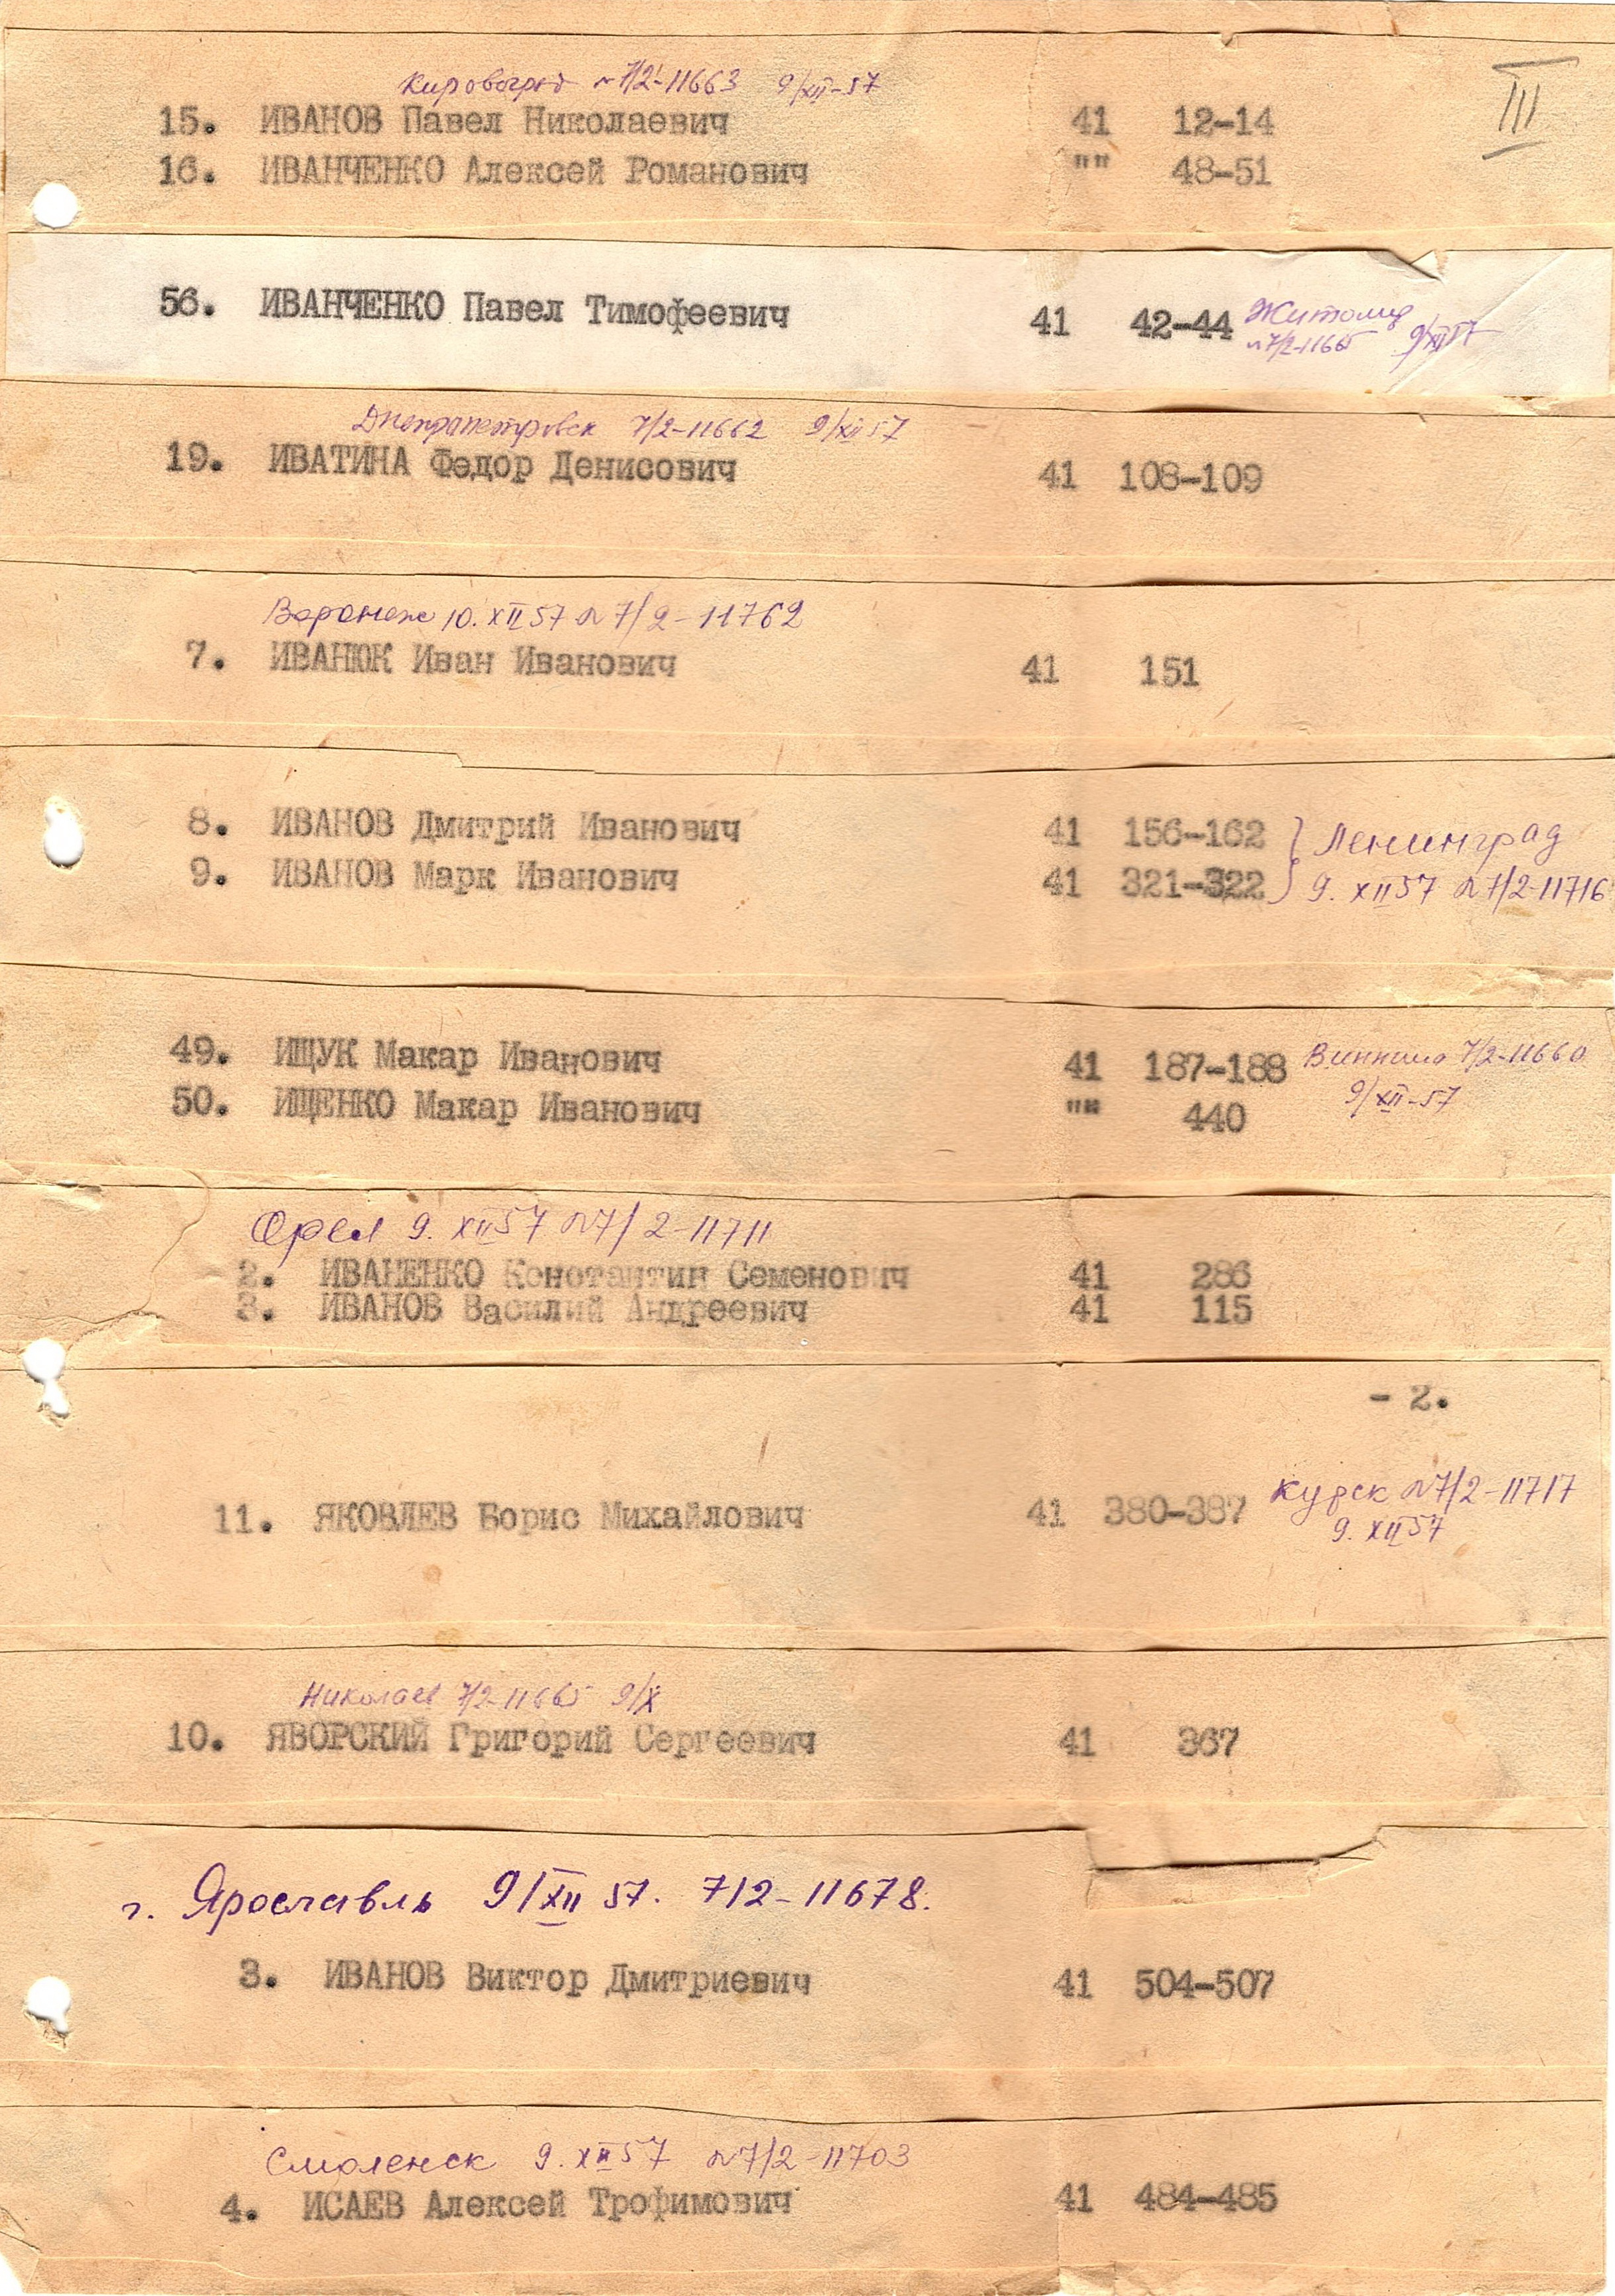 III
Кировоград № 7/2-11663 9/XII-57
15. ИВАНОВ Павел Николаевич 41 12-14
16. ИВАНЧЕНКО Алексей Романович "" 48-51
56. ИВАНЧЕНКО Павел Тимофеевич 41 42-44 Житомир
№7/2-11665 9/XII57
Днепропетровск 7/2-11662 9/XII57
19. ИВАТИНА Федор Денисович 41 108-109
Воронеж 10.XII57 №7/2-11762
7. ИВАНЮК Иван Иванович 41 151
8. ИВАНОВ Дмитрий Иванович 41 156-162 } Ленинград
9. ИВАНОВ Марк Иванович 41 321-322 9.XII57 №7/2-11716
49. ИЩУК Макар Иванович 41 187-188 Винница 7/2-11660
9/XII-57
50. ИЩЕНКО Макар Иванович "" 440
Орел 9.XII57 №7/2-11711
2. ИВАНЕНКО Константин Семенович 41 286
3. ИВАНОВ Василий Андреевич 41 115
- 2.
Курск №7/2-11717
11. ЯКОВЛЕВ Борис Михайлович 41 380-387
9.XII57
Николаев 7/2-11665 9/X
10. ЯВОРСКИЙ Григорий Сергеевич 41 367
г. Ярославль 9/XII 57. 7/2-11678.
3. ИВАНОВ Виктор Дмитриевич 41 504-507
Смоленск 9.XII57 №7/2-11703
4. ИСАЕВ Алексей Трофимович 41 484-485